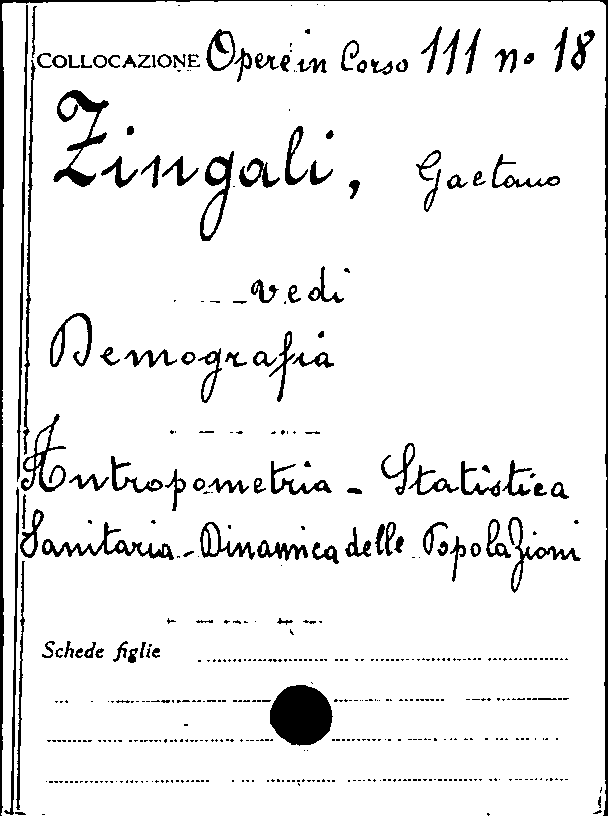 COLLOCAZIONE Opere in Corso 111 n° 18
Zingali, Gaetano
vedi
Demografia
Antropometria - Statistica
Sanitaria - Dinamica delle Popolazioni
Schede figlie